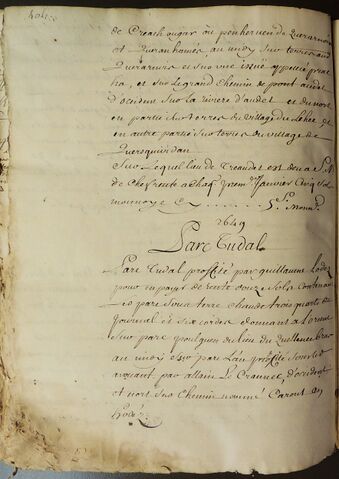 404
de Creach ougar ou penherven de Queramon
et Queranhomés au midy sur terres
Querarurus et sur une issue appellée prat
ha, et sur le grand chemin de pont audet
d'ocident sur la riviere d'audet et du nort
en partie sur terres du village du Lehec et
en autre partie sur terres du village de
Querguirdan
Sur Lequel lieu de Treaudet est deu a S. M.
de chefrente a chaque premr. Janvier cinq sols
monnoye Cy ------- 5 s. monn.
2649
Parc Tudal
Parc Tudal profité par guillaume Lodez
pour en payer de rente douze sols contenant
Le parc sous terre chaude trois quarts de
Journal et six cordes donnant a l'orient
sur parc du lieu du Quellenec bras
au midy sur parc Lan profité
avenant par allain Le Crannec, d'ocident
et nort sur chemin nommé Carout an
hodé